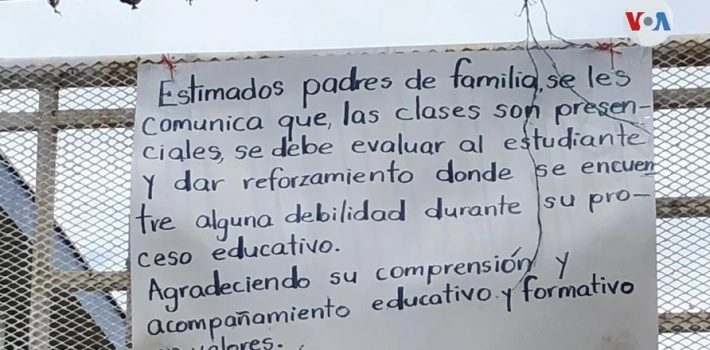 VOA
Estimados padres de familia, se les
comunica que, las clases son presen-
ciales, se debe evaluar al estudiante
y dar reforzamiento donde se encuen
tre alguna debilidad durante su pro-
ceso educativo.
Agradeciendo su comprensión y
acompañamiento educativo y formativo
valores.